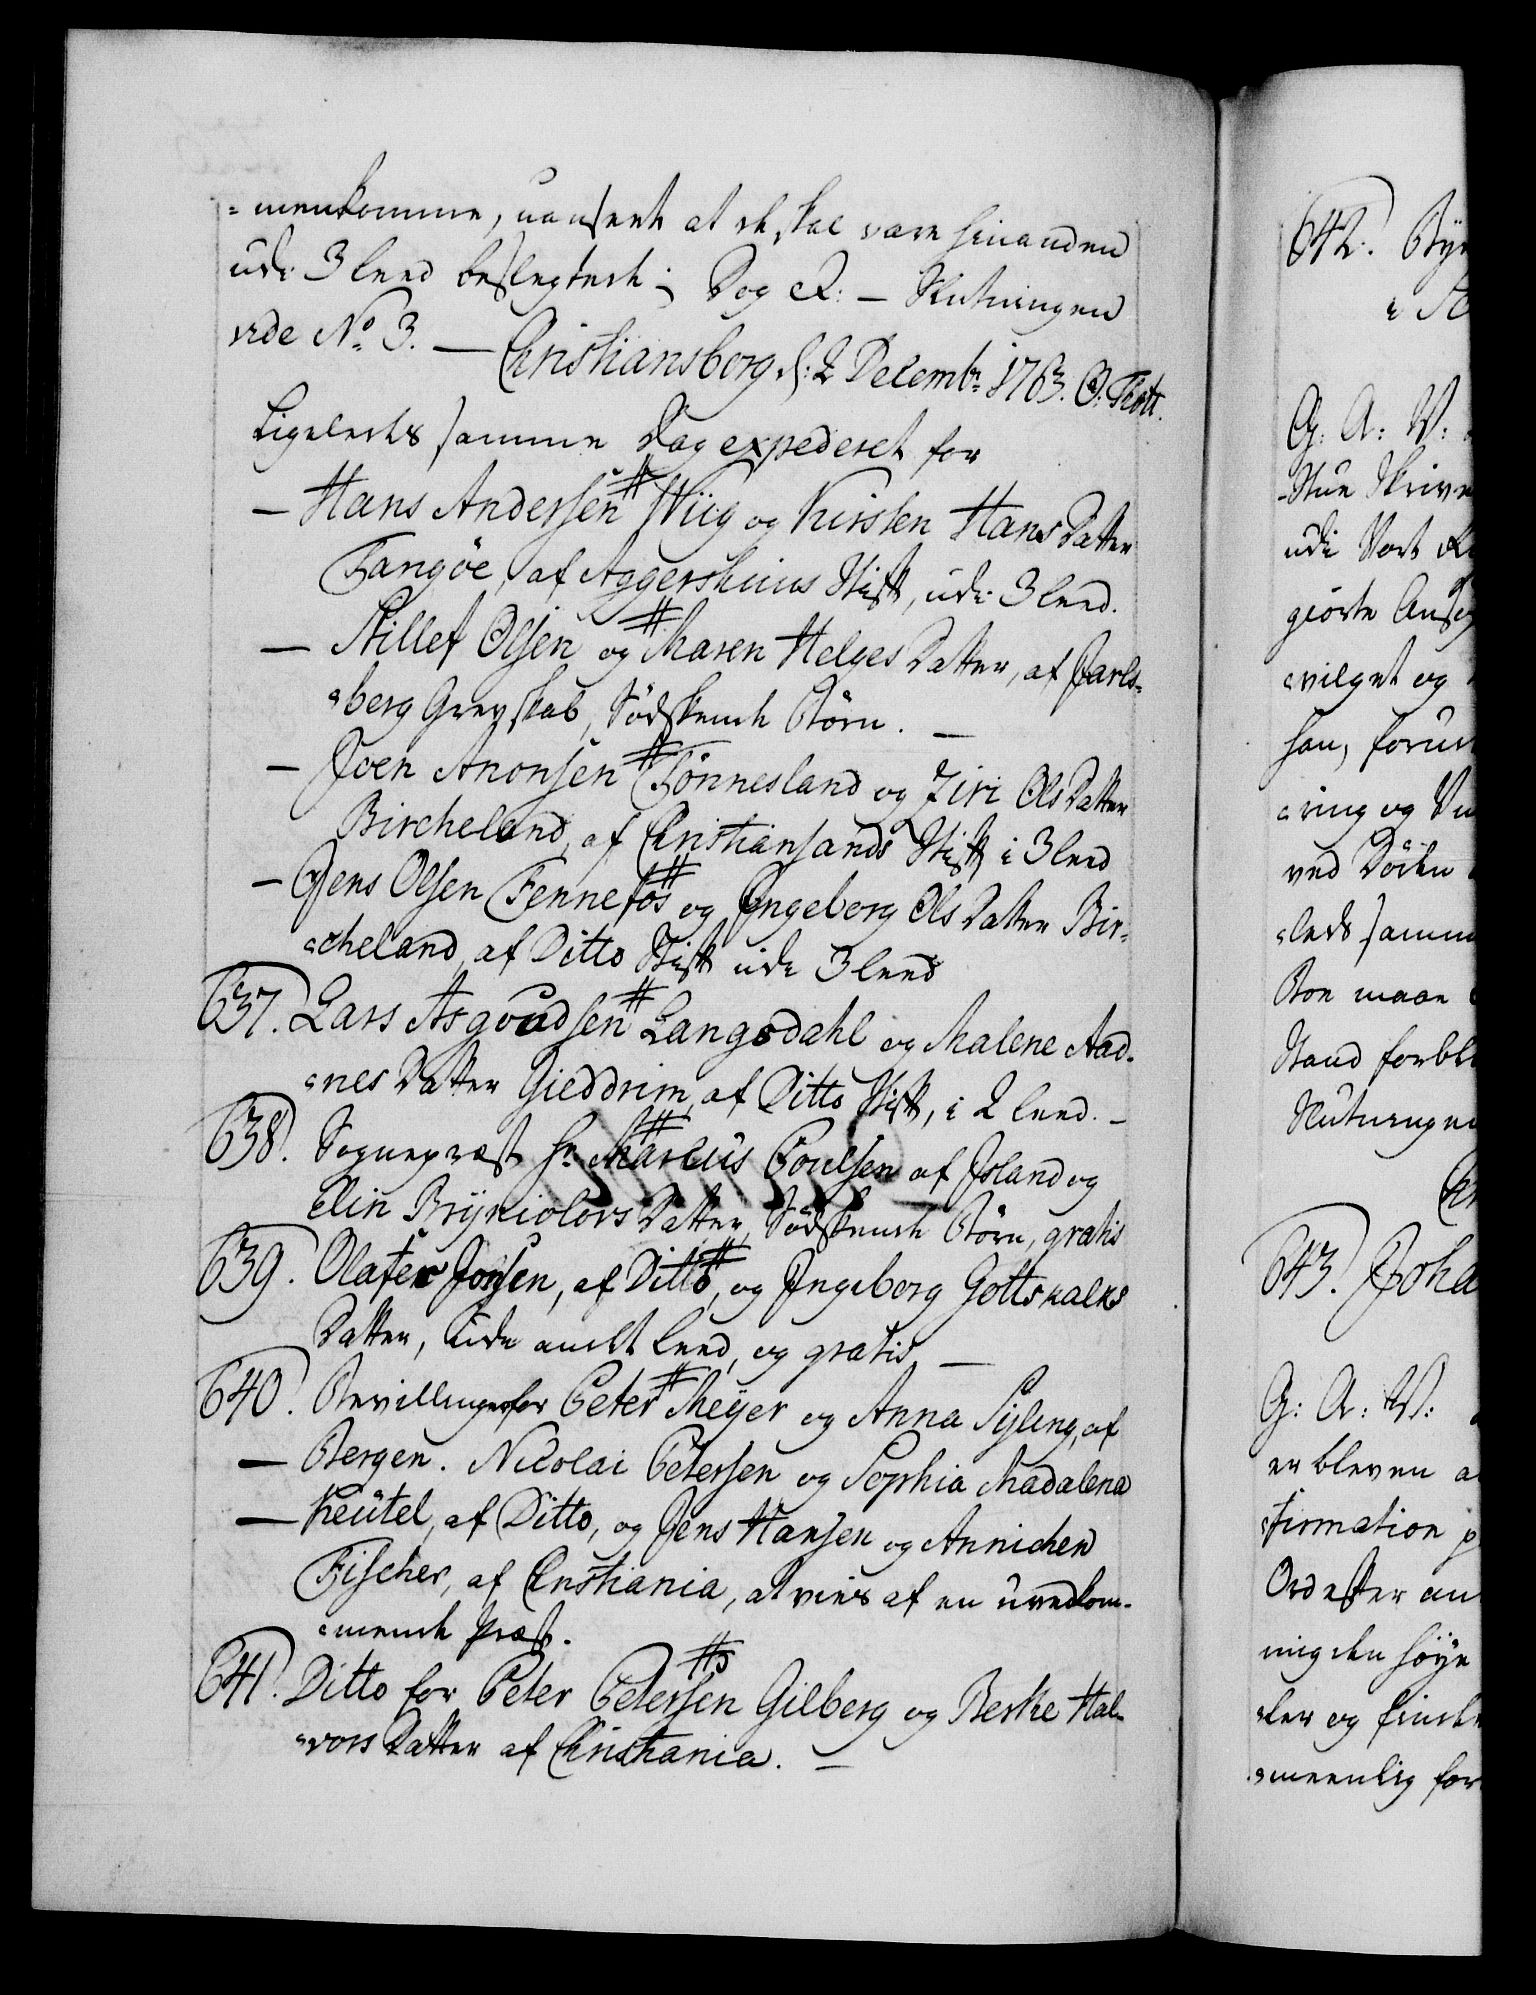 =menkomme, uanseet at de skal være hinanden
udi 3 leed beslegtede; Dog &: — Slutningen
vide No 3. — Christiansborg d: 2 Decembr 1763. O. Thott.
Ligeledes samme Dag expederet for
— Hans Andersen Wiig og Kirsten Hans Datter
Tangöe, af Aggershuus Stift, udi 3 leed.
— Stillef Olsen og Maren Helges Datter, af Jarls=
=berg Grevskab, Södskende Börn. —
— Joen Anonsen Tönnesland og Ziri Ols Datter
Bircheland, af Christiansands Stift i 3 leed
— Jens Olsen Fennefos og Ingeberg Ols Datter Bir=
=cheland, af Ditto Stift udi 3 leed
637. Lars Asgoudsen Langedahl og Malene Aad=
=nes Datter Gieddrim, af Ditto Stift, i 2 leed. —
638. Sognepræst Hr Marcus Poulsen af Island og
Elin Bryniolovs Datter, Södskende Börn, gratis
639. Olafer Jonsen, af Ditto, og Ingeborg Gottskalks
Datter, udi andet leed, og gratis —
640. Bevillinger for Peter Meyer og Anna Syling, af
— Bergen. Nicolai Petersen og Sophia Madalena
— Keütel, af Ditto, og Jens Hansen og Annichen
Fischer, af Christiania, at vies af en uvedkom=
=mende Præst.
641. Ditto for Peter Petersen Gilberg og Berthe Hal=
=vors Datter af Christiania. —
642. Byr
G: A: V:
Stue Skrive
udi Vort
giorte Ansøg
=vilget og
han, forud
=ring og
ved Döden
=leds samme
Bon maae
Stand forbl
Slutningen
643. Joha
G: A: V:
er bleven a
=firmation p
Ord efter an
mig den höye
=ler og finde
=meenlig for